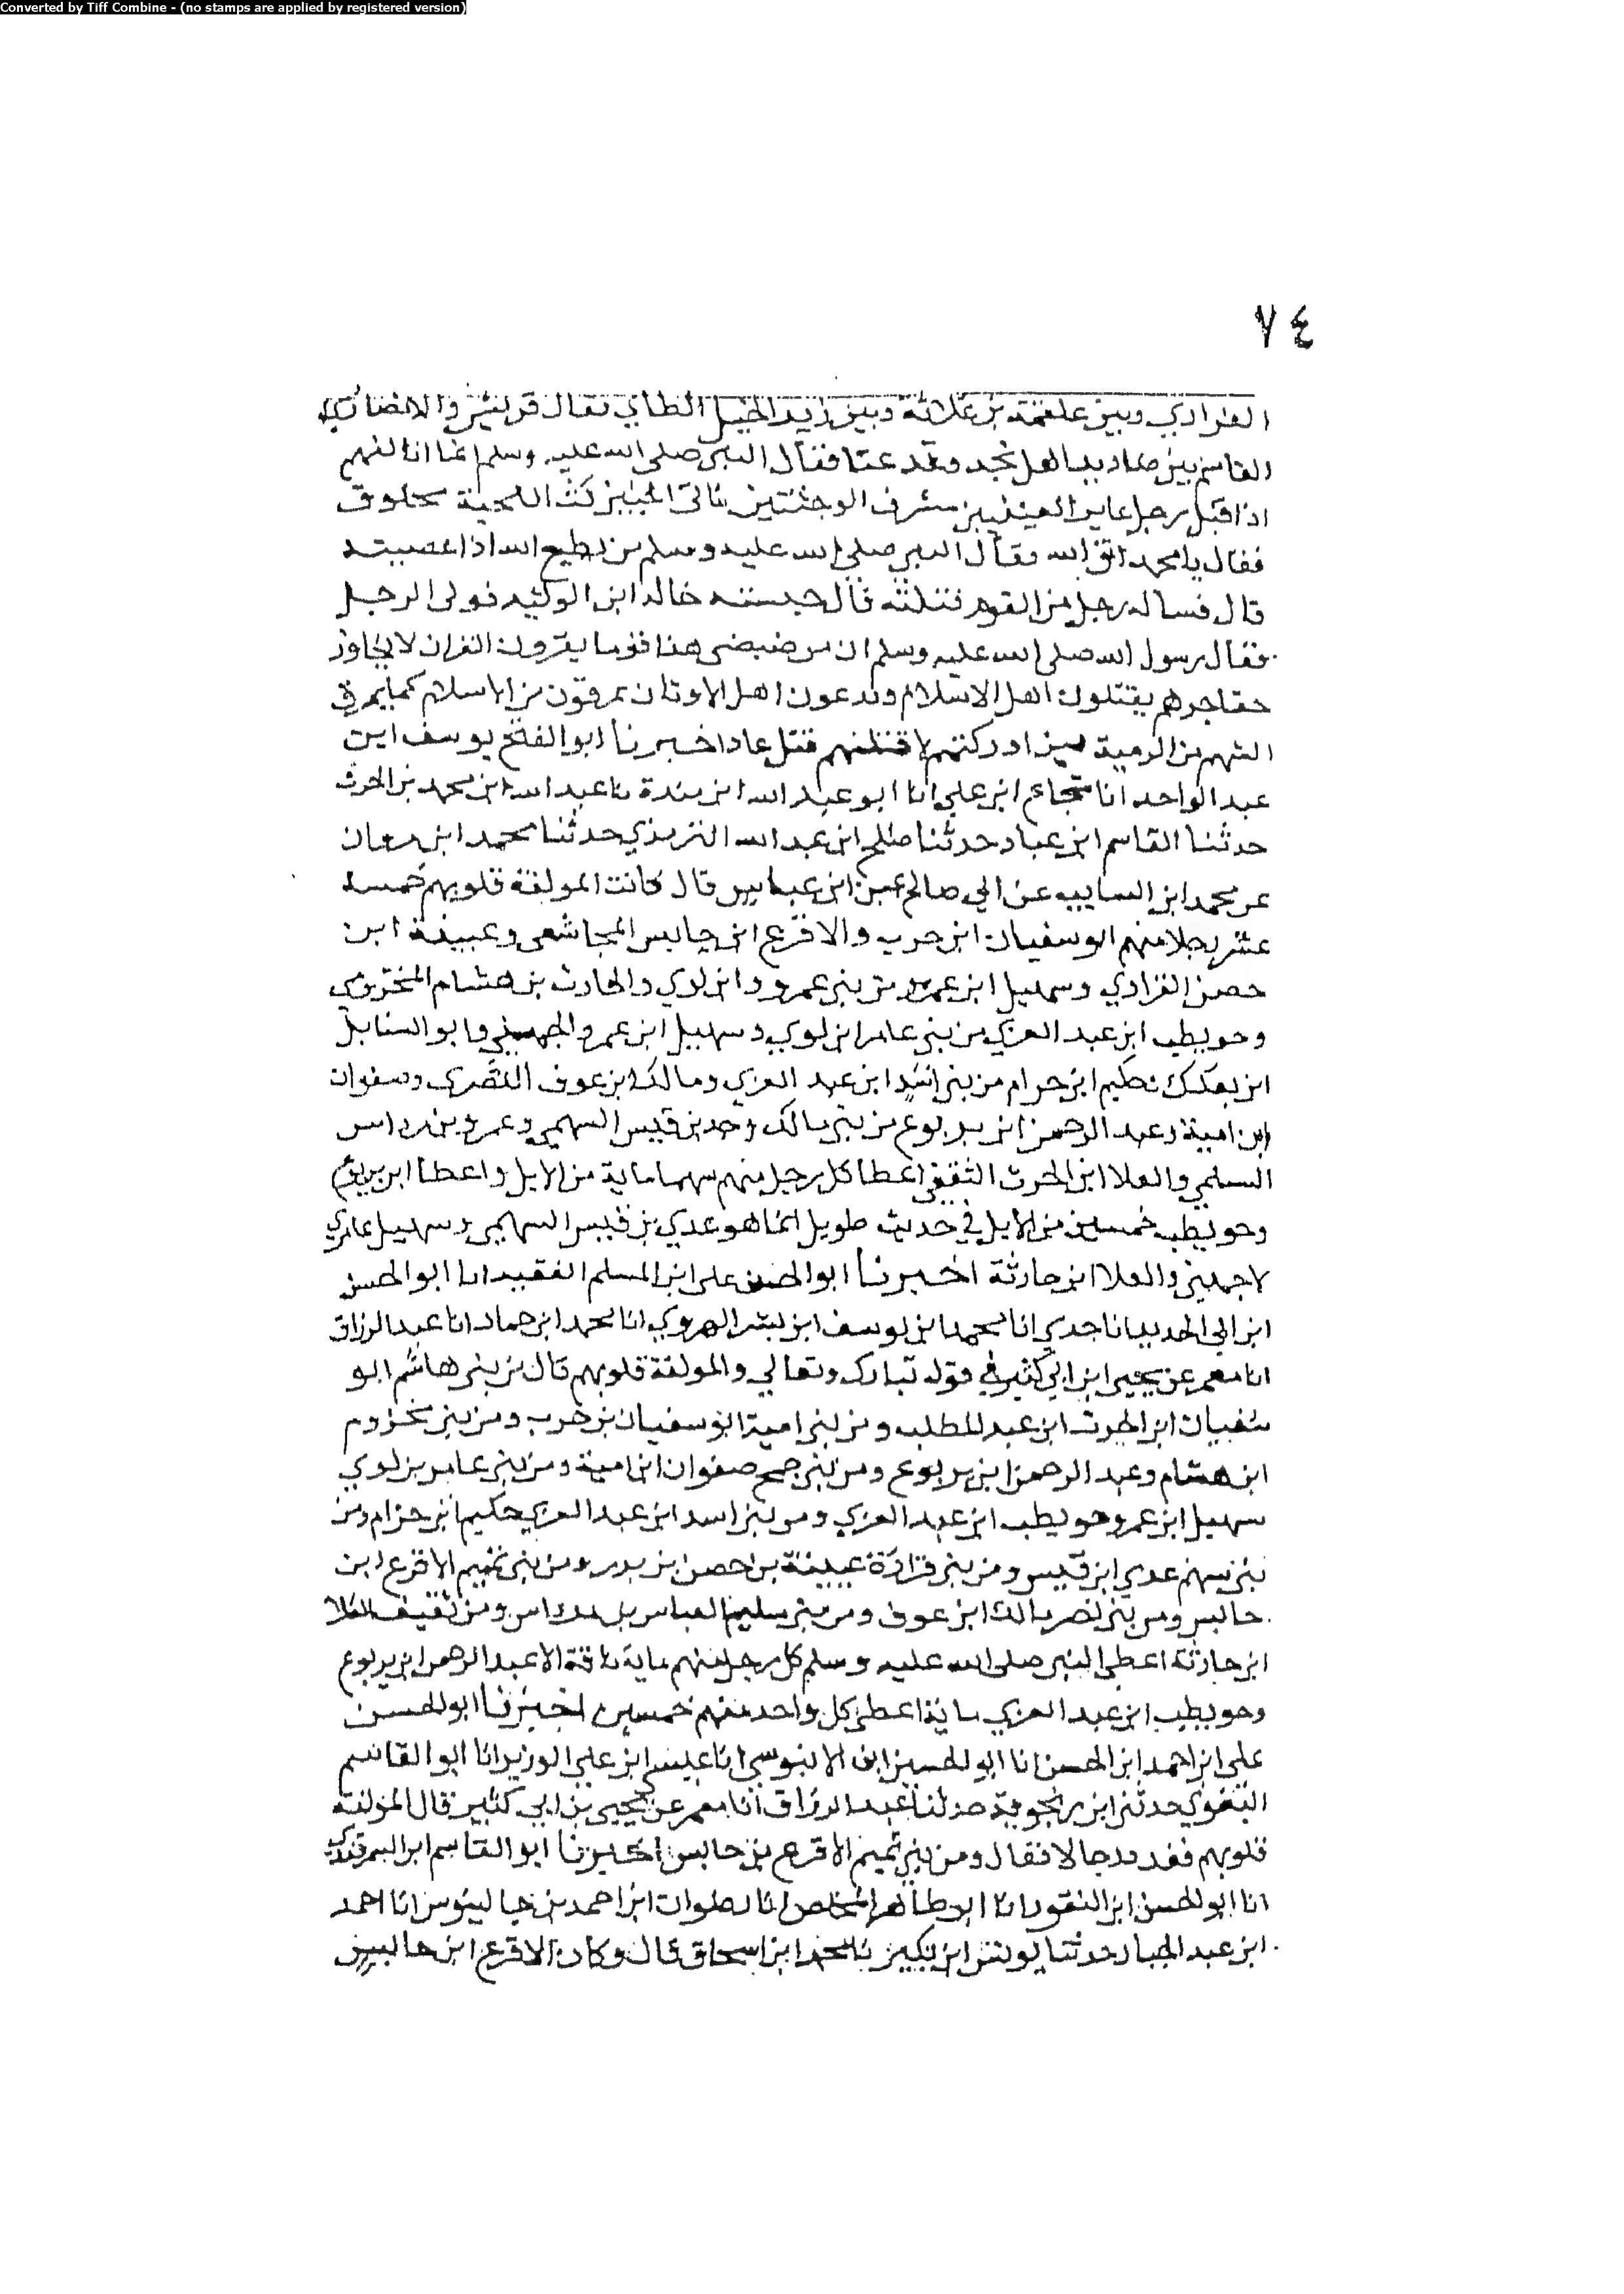 Converted by Tiff Combine - (no stamps are applied by registered version)
٧٤
الفزاري وبين علقمة بن علاثة وبين زيد الخيل الطائي فقال قريش والانصار
القاسم بين صناديد اهل نجد وقد عنا فقال النبي صلى الله عليه وسلم انما اتالفهم
اذ اقبل رجل غاير العينين مشرف الوجنتين ناتئ الجبين كث اللحية محلوق
فقال يا محمد اتق الله فقال النبي صلى الله عليه وسلم من يطيع الله اذا عصيته
قال فساله رجل من القوم قتلته قال حسبته خالد ابن الوليد فولى الرجل
فقال رسول الله صلى الله عليه وسلم ان من ضيضئ هذا قوما يقرون القران لا يجاوز
حناجرهم يقتلون اهل الاسلام ويدعون اهل الاوثان يمرقون من الاسلام كما يمرق
السهم من الرمية لين ادركتهم لاقتلنهم قتل عاد اخبرنا ابو الفتح يوسف ابن
عبد الواحد انا شجاع ابن علي انا ابو عبد الله ابن مندة نا عبد الله ابن محمد بن الحرث
حدثنا القاسم ابن عباد حدثنا صالح ابن عبد الله الترمذي حدثنا محمد ابن مروان
عن محمد ابن السايب عن ابي صالح عن ابن عباس قال كانت المولفة قلوبهم خمسة
عشر رجلا منهم ابو سفيان ابن حرب والاقرع ابن حابس المجاشعي وعيينة ابن
حصن الفزاري وسهيل ابن عمرو من بني عمرو وابن لوي والحارث بن هشام المخزومي
وحويطب ابن عبد العزي من بني عامر ابن لوي وسهيل ابن عمرو الجهني وابو السنابل
ابن بعكك حكيم ابن حرام من بني اسد ابن عبد العزي ومالك ابن عوف النصري وصفوان
ابن امية وعبد الرحمن ابن يربوع من بني مالك وجد بن قيس السهمي وعمرو بن مرداس
السلمي والعلا ابن الحرث الثقفي اعطا كل رجل منهم سهما ماية من الابل واعطا ابن يربوع
وحويطب خمسين من الابل في حديث طويل انما هو عدي بن قيس السهمي وسهيل عامري
لا جهني والعلا ابن حارثة اخبرنا ابو الحسن علي ابن المسلم الفقيه انا ابو الحسن
ابن ابي الحديد انا جدي انا محمد ابن يوسف ابن بشر الهروي انا محمد ابن حماد انا عبد الرزاق
انا معمر عن يحيى ابن ابي كثير في قوله تبارك وتعالي والمولفة قلوبهم قال من بني هاشم ابو
سفيان ابن الحرث ابن عبد المطلب ومن بني امية ابو سفيان بن حرب ومن بني مخزوم
ابن هشام وعبد الرحمن ابن يربوع ومن بني جمح صفوان ابن امية ومن بني عامر بن لوي
سهيل ابن عمرو حويطب ابن عبد العزي ومن بني اسد ابن عبد العزي حكيم ابن حزام ومن
بني سهم عدي ابن قيس ومن بني فزارة عيينة بن حصن بن بدر ومن بني تميم الاقرع ابن
حابس ومن بني نصر مالك ابن عوف ومن بني سليم العباس بن مرداس ومن ثقيف العلا
ابن حارثة اعطى النبي صلى الله عليه وسلم كل رجل منهم ماية ناقة الا عبد الرحمن ابن يربوع
وحويطب ابن عبد العزي فانه اعطى كل واحد منهم خمسين اخبرنا ابو الحسن
علي ابن احمد ابن الحسن انا ابو الحسين ابن الابنوسي انا عيسى ابن علي الوزير انا ابو القاسم
البغوي حدثني ابن زنجوية حدثنا عبد الرزاق انا معمر عن يحيى بن ابي كثير قال المؤلفة
قلوبهم فعد رجالا فقال ومن بني تميم الاقرع بن حابس اخبرنا ابو القاسم ابن السمرقندي
انا ابو الحسن ابن النقور انا ابو طاهر المخلص انا رضوان ابن احمد بن جالينوس انا احمد
ابن عبد الجبار حدثنا يونس ابن بكير نا محمد ابن اسحاق قال وكان الاقرع ابن حابس